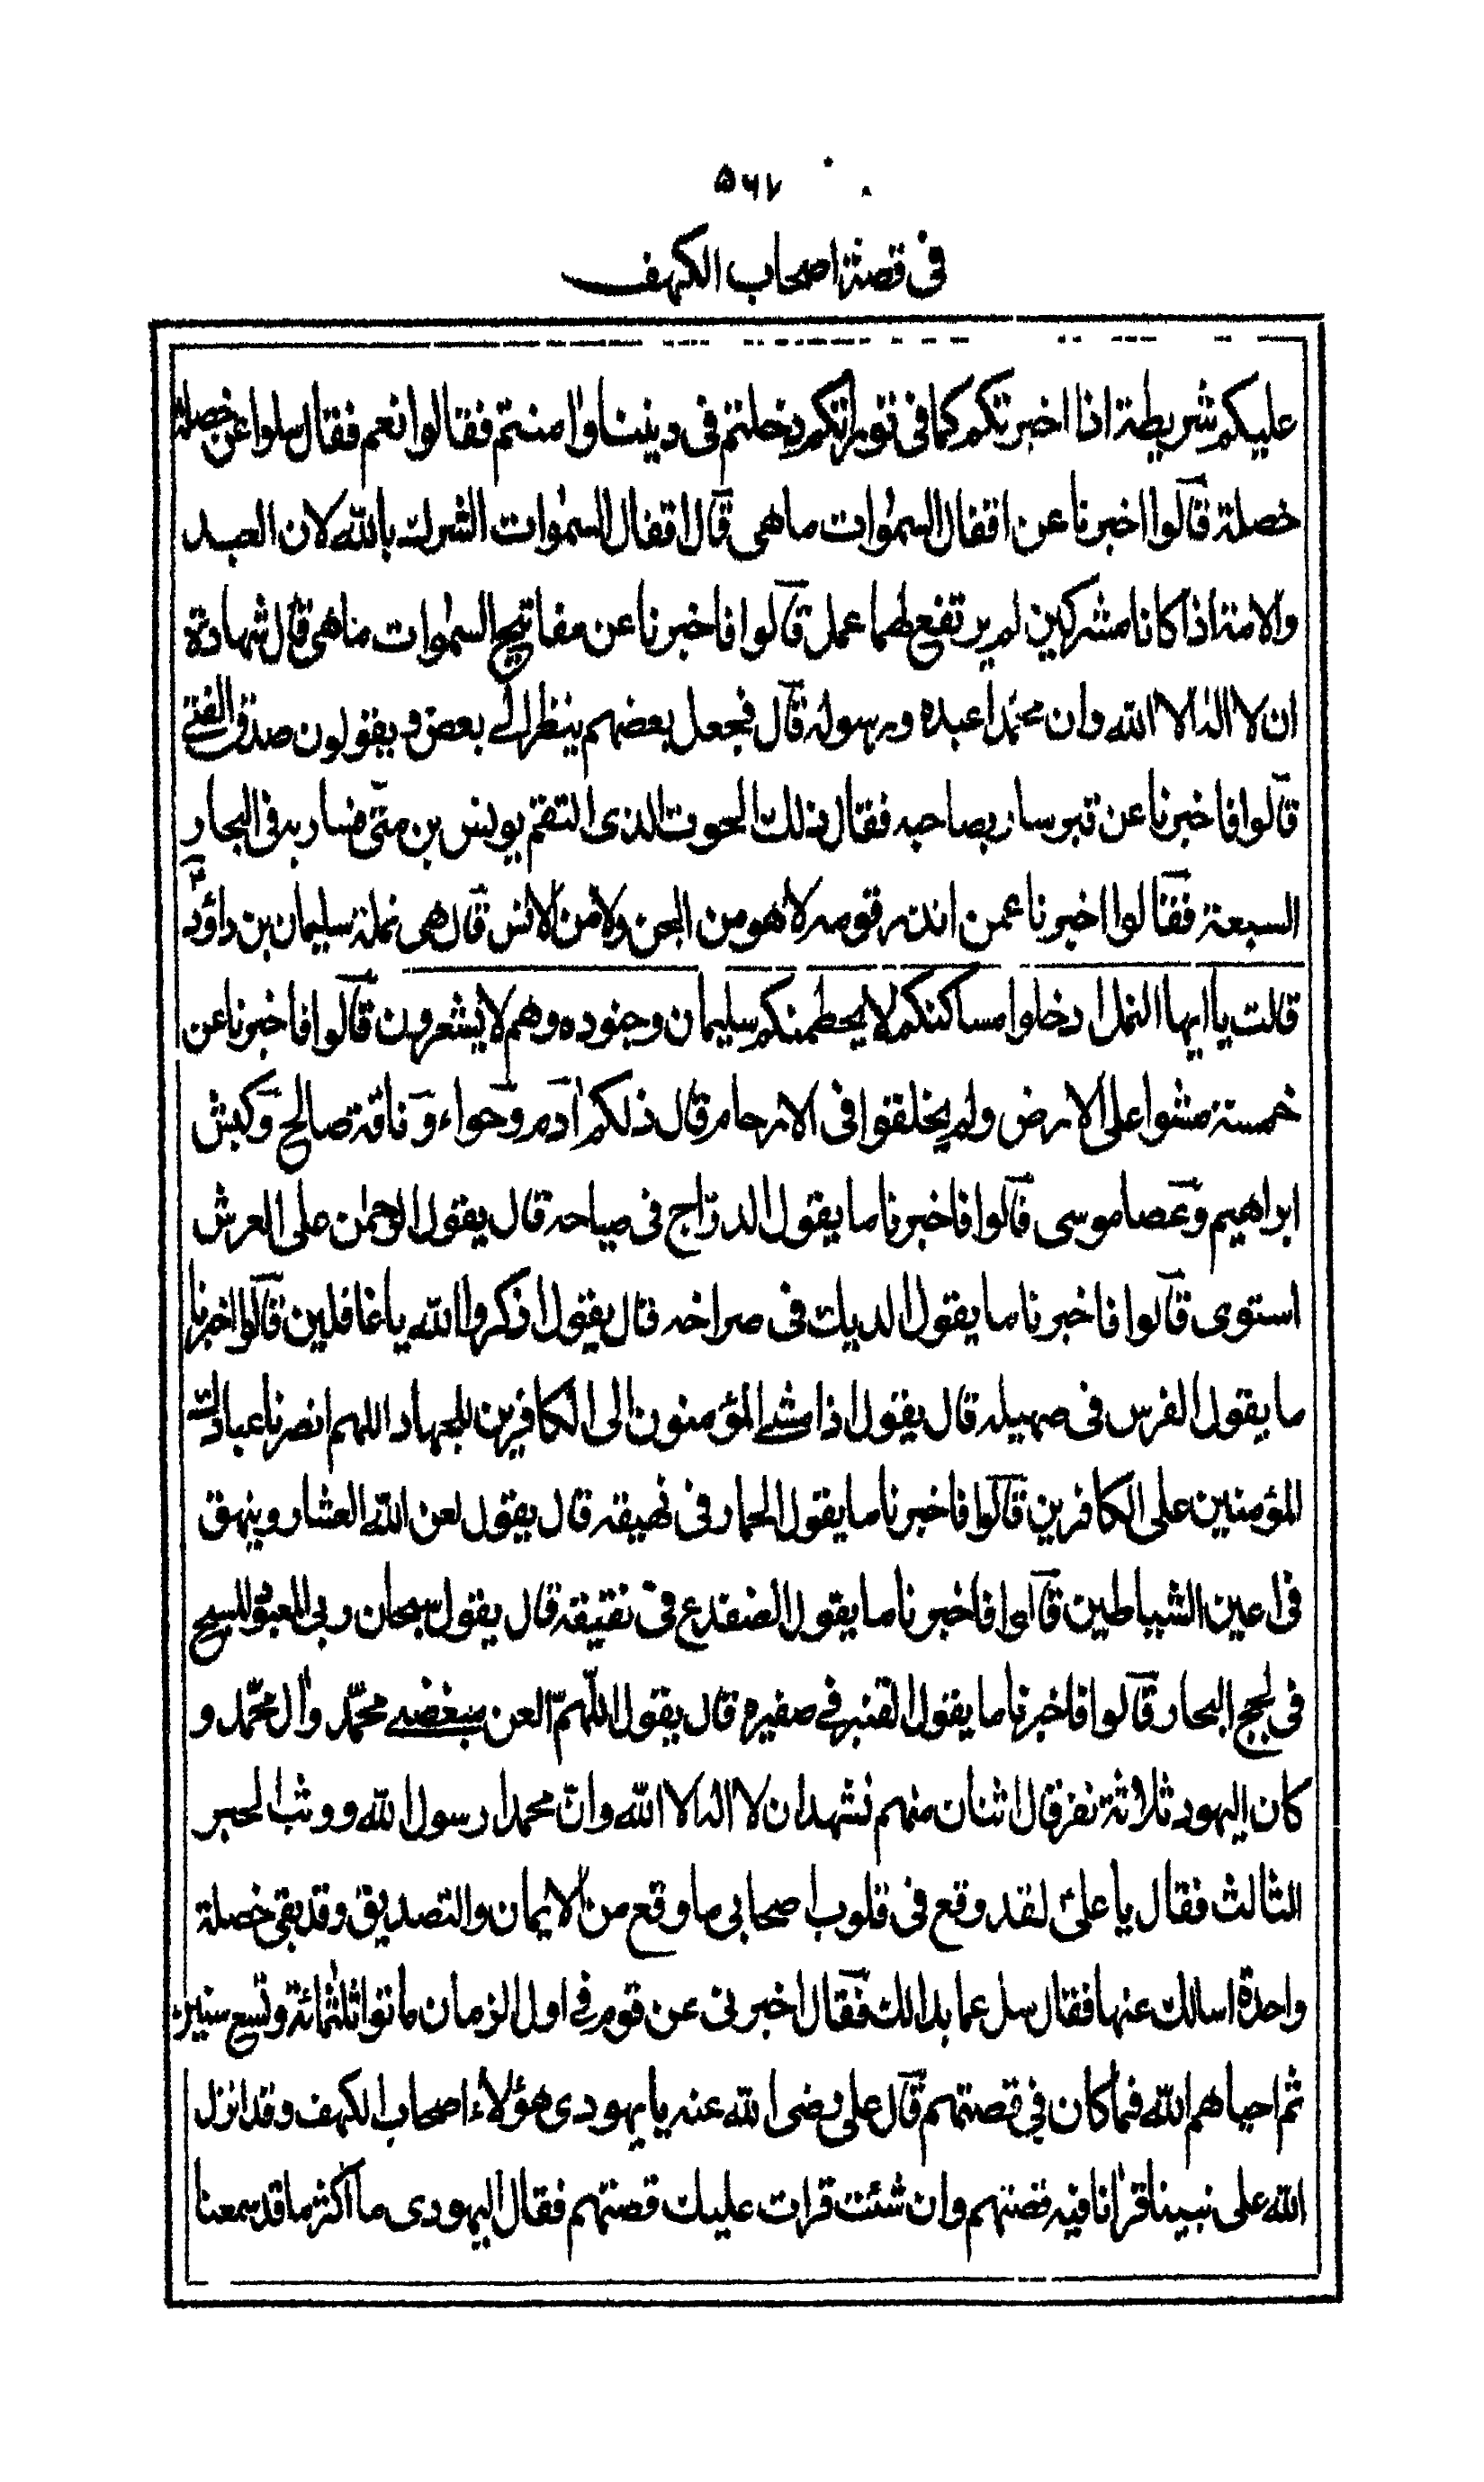 ۵۶۷
فی قصة اصحاب الکهف
علیکم شریطة اذا اخبرتکم کما فی توراتکم دخلتم فی دیننا واٰمنتم فقالوا نعم فقال سلوا عن خصلة
خصلة قالوا اخبرنا عن اقفال السمٰوات ما هی قال اقفال السمٰوات الشرک بالله لان العبد
والامة اذا کانا مشرکین لم یرتفع لهما عمل قالوا فاخبرنا عن مفاتیح السمٰوات ما هی قال شهادة
ان لا اله الا الله وان محمّدا عبده ورسوله قال فجعل بعضهم ینظر الی بعض و یقولون صدق الفتی
قالوا فاخبرنا عن قبر سار بصاحبه فقال ذلک الحوت الذی التقم یونس بن متّی فسار به فی البحار
السبعة فقالوا اخبرنا عمن انذر قومه لا هو من الجن ولا من الانس قال هی نملة سلیمان بن داؤد
قالت یا ایها النمل ادخلوا مساکنکم لا یحطمنکم سلیمان وجنوده وهم لا یشعرون قالوا فاخبرنا عن
خمسة مشوا علی الارض ولم یخلقوا فی الارحام قال ذلکم اٰدم وحواء و ناقة صالح وکبش
ابراهیم وعصا موسی قالوا فاخبرنا ما یقول الدرّاج فی صیاحه قال یقول الرحمٰن علی العرش
استوی قالوا فاخبرنا ما یقول الدیک فی صراخه قال یقول اذکروا الله یا غافلین قالوا اخبرنا
ما یقول الفرس فی صهیله قال یقول اذا مشی المؤمنون الی الکافرین للجهاد اللهم انصرنا عبادک
المؤمنین علی الکافرین قالوا فاخبرنا ما یقول الحمار فی نهیقه قال یقول لعن الله العشار وینهق
فی اعین الشیاطین قالوا فاخبرنا ما یقول الضفدع فی نقیقه قال یقول سبحان ربی المعبود المسبح
فی لجج البحار قالوا فاخبرنا ما یقول القنبر فی صفیره قال یقول اللّهمّ العن مبغضی محمّد واٰل محمّد و
کان الیهود ثلاثة نفر قال اثنان منهم نشهد ان لا اله الا الله وانّ محمدا رسول الله و وثب الحبر
الثالث فقال یا علیّ لقد وقع فی قلوب اصحابی ما وقع من الایمان والتصدیق وقد بقی خصلة
واحدة اسالک عنها فقال سل عما بدا لک فقال اخبرنی عن قوم فی اول الزمان ماتوا ثلٰثمائة وتسع سنین
ثم احیاهم الله فما کان فی قصتهم قال علی رضی الله عنه یا یهودی هؤلاء اصحاب الکهف وقد انزل
الله علی نبینا قراٰنا فیه قصتهم وان شئت قرات علیک قصتهم فقال الیهودی ما اکثر ما قد سمعنا